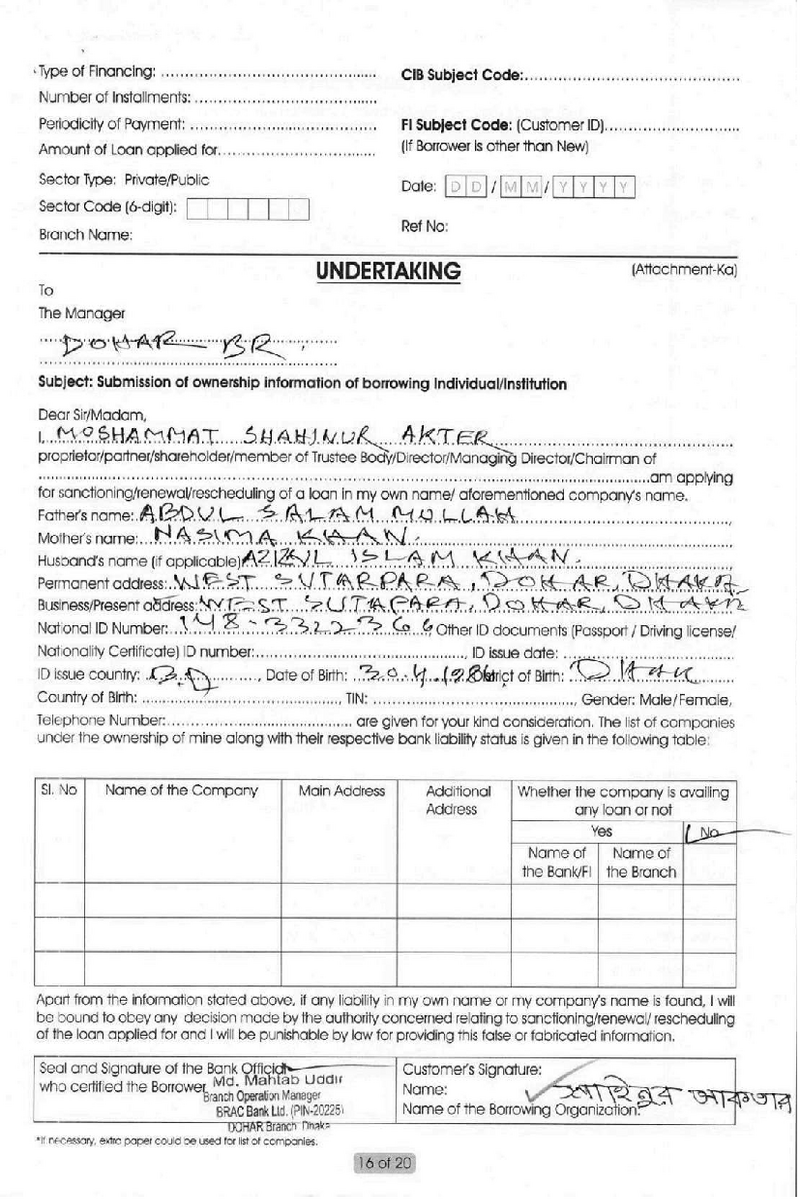 Type of Financing: ..............................................
CIB Subject Code:..............................................
Number of Installments: .......................................
Periodicity of Payment: ........................................
FI Subject Code: (Customer ID).............................
Amount of Loan applied for..................................
(If Borrower is other than New)
Sector Type: Private/Public
Date: D D / M M / Y Y Y Y
Sector Code (6-digit):
Ref No:
Branch Name:
UNDERTAKING
(Attachment-Ka)
To
The Manager
DOHAR BR.
Subject: Submission of ownership information of borrowing Individual/Institution
Dear Sir/Madam,
I, MOSHAMMAT SHAHINUR AKTER
proprietor/partner/shareholder/member of Trustee Body/Director/Managing Director/Chairman of
....................................................am applying
for sanctioning/renewal/rescheduling of a loan in my own name/ aforementioned company's name.
Father's name: ABDUL SALAM MOLLAH,
Mother's name: NASIMA KHAN.
Husband's name (if applicable) AZIZUL ISLAM KHAN.
Permanent address: WEST SUTARPARA, DOHAR, DHAKA
Business/Present address: WEST SUTAPARA, DOHAR,
National ID Number: 148-3322366 Other ID documents (Passport / Driving license/
Nationality Certificate) ID number:............................................, ID issue date: ..............................
ID issue country: BD, Date of Birth: District of Birth:
Country of Birth: ........................................, TIN: ........................................, Gender: Male/Female,
Telephone Number:........................................ are given for your kind consideration. The list of companies
under the ownership of mine along with their respective bank liability status is given in the following table:
Sl. No Name of the Company Main Address Additional Address Whether the company is availing any loan or not
Yes No
Name of the Bank/FI Name of the Branch
Apart from the information stated above, if any liability in my own name or my company's name is found, I will
be bound to obey any decision made by the authority concerned relating to sanctioning/renewal/ rescheduling
of the loan applied for and I will be punishable by law for providing this false or fabricated information.
Seal and Signature of the Bank Official
who certified the Borrower
Md. Mahtab Uddin
Branch Operation Manager
BRAC Bank Ltd. (PIN-20225)
DOHAR Branch Dhaka
Customer's Signature:
Name: শাহিনুর আকতার
Name of the Borrowing Organization:
*If necessary, extra paper could be used for list of companies.
16 of 20